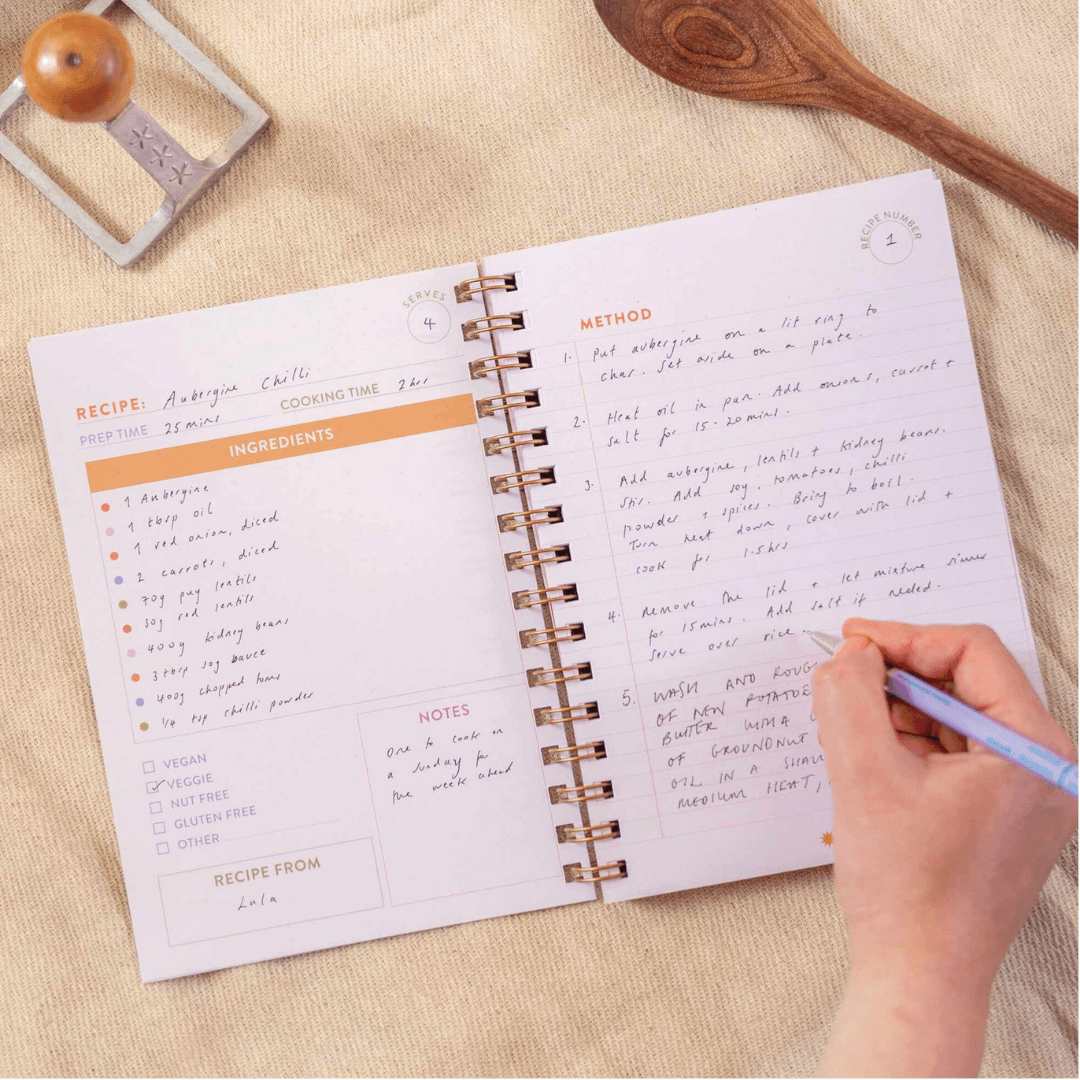 SERVES
4
RECIPE: Aubergine Chilli
PREP TIME 25 mins COOKING TIME 2 hrs
INGREDIENTS
1 Aubergine
1 tbsp oil
1 red onion, diced
2 carrots, diced
70g puy lentils
50g red lentils
400g kidney beans
3 tbsp soy sauce
400g chopped toms
1/4 tsp chilli powder
VEGAN
VEGGIE
NUT FREE
GLUTEN FREE
OTHER
NOTES
One to cook on
a Sunday for
the week ahead
RECIPE FROM
Lula
RECIPE NUMBER
1
METHOD
1. Put aubergine on a lit ring to
char. Set aside on a plate.
2. Heat oil in pan. Add onions, carrot +
salt for 15-20 mins.
3. Add aubergine, lentils + kidney beans.
Stir. Add soy, tomatoes, chilli
powder + spices. Bring to boil.
Turn heat down, cover with lid +
cook for 1.5hrs
4. Remove the lid + let mixture simmer
for 15mins. Add salt if needed.
Serve over rice.
5. WASH AND
OF NEW
BUTTER WITH A
OF GROUNDNUT
OIL IN A
MEDIUM HEAT,